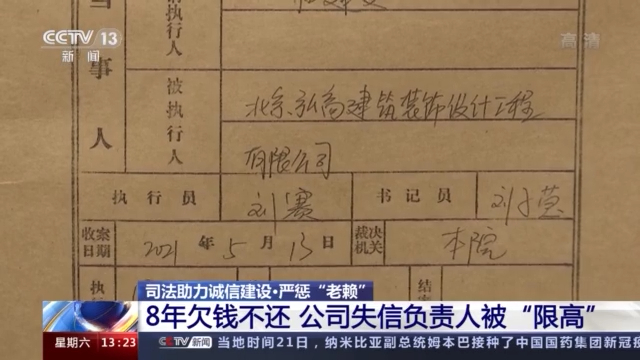 CCTV 13
新闻
高清
当事人
执行人
被执行人
北京弘高建筑装饰设计工程
有限公司
执行员
刘赛
书记员
收案日期
2021年5月13日
裁决机关
本院
司法助力诚信建设·严惩“老赖”
8年欠钱不还 公司失信负责人被“限高”
星期六 13:23
CCTV 13 新闻
当地时间21日，纳米比亚副总统姆本巴接种了中国国药集团新冠疫